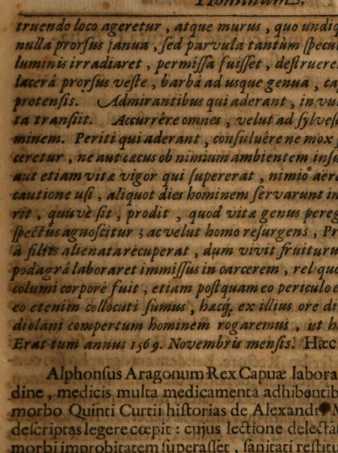 truendo loco ageretur, atque murus, quo undiq
nulla prorsus janua, sed parvula tantùm specu
luminis irradiaret, permissa fuisset, destruere
lacerâ prorsus veste, barbâ ad usque genua, ca
protensis. Admirantibus qui aderant, in vul
ta transiit. Accurrère omnes, velut ad sylves
minem. Periti qui aderant, consuluêre ne mox
ceretur, ne aut cæcus ob nimium ambientem
aut etiam vitæ vigor qui supererat, nimio aëre
cautione usi, aliquot dies hominem servarunt in
rit, quisve sit, prodit, quod vitæ genus pereg
spectus agnoscitur; ac velut homo resurgens, Pr
à filiis alienata recuperat, dum vivit fruiturus
podagrâ laboraret immissus in carcerem, reliquo
columi corpore fuit, etiam postquam eo periculo e
eo etenim collocuti sumus, hæcq́; ex illius ore di
diolani compertum hominem rogaremus, ut h
Erat tum annus 1569. Novembris mensis. Hæc
Alphonsus Aragonum Rex Capuæ labora
dine, medicis multa medicamenta adhibentib
morbo Quinti Curtii historias de Alexandri M
descriptas legere cœpit: cujus lectione delectat
morbi improbitatem superasset, sanitati restitu